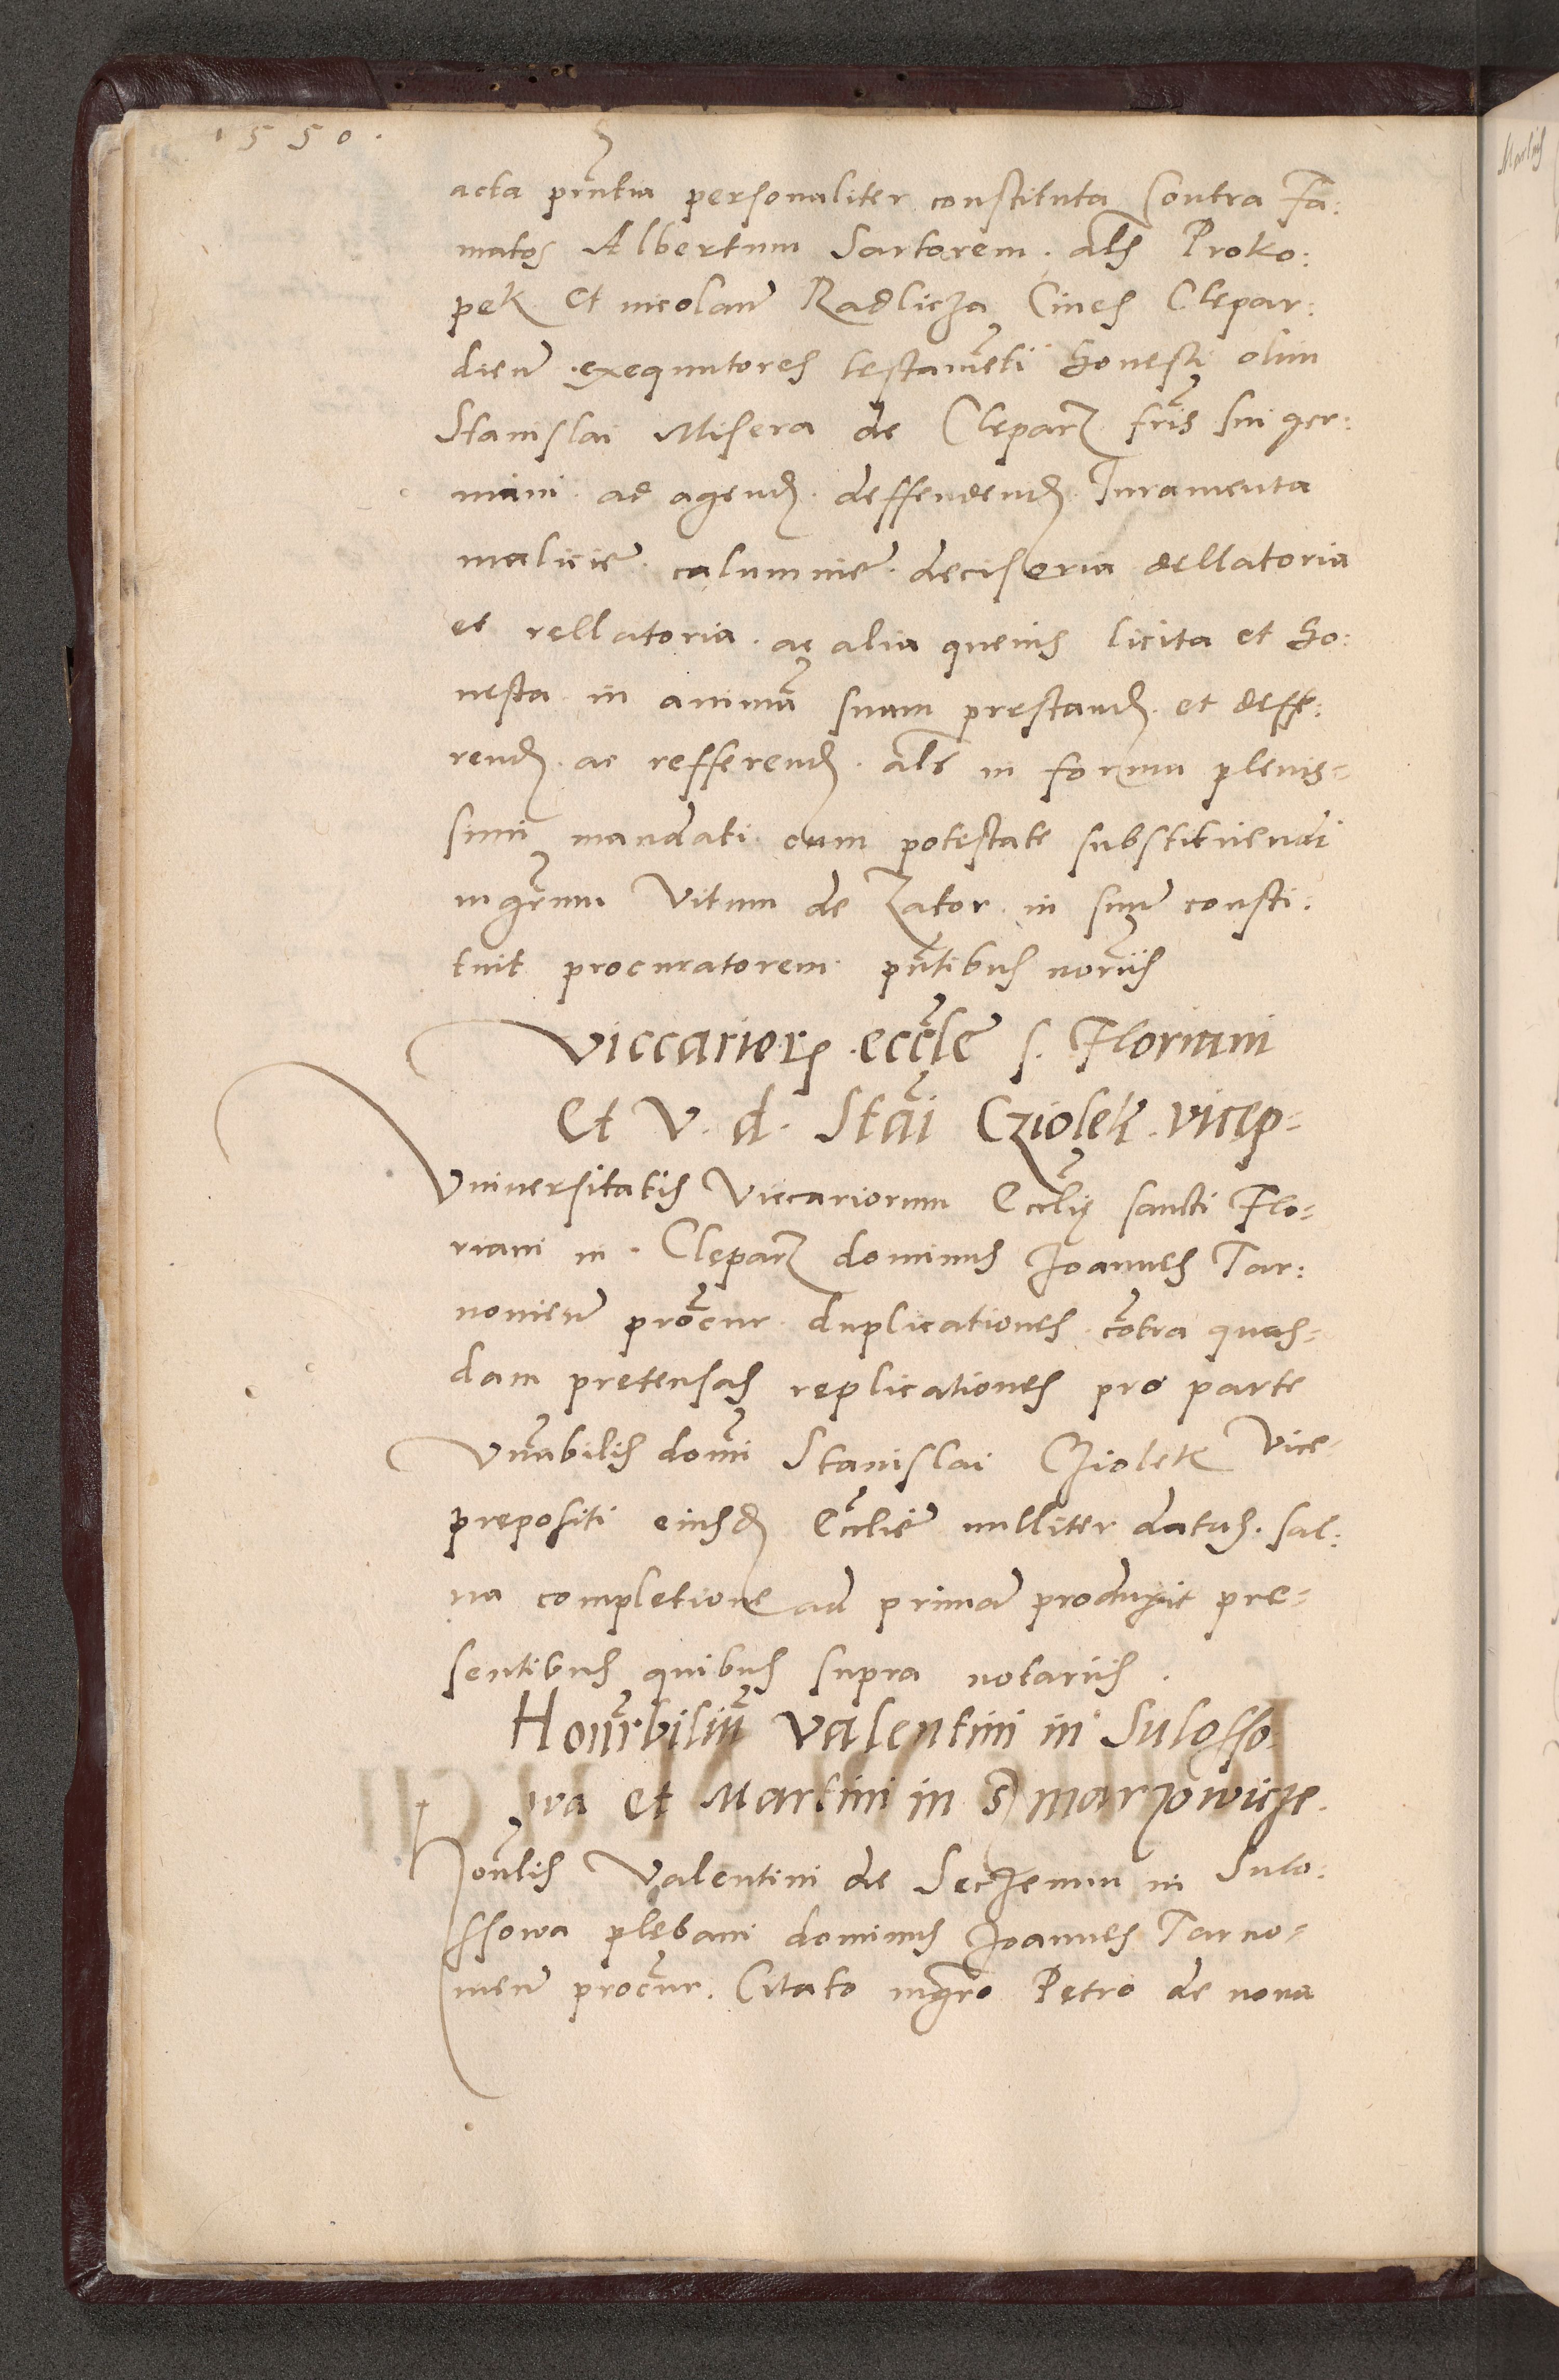 1550.
acta pñtia personaliter constituta Contra Fa:
matos Albertum Sartorem. als Proko:
pek Et nicolaum Radlicza Ciues Clepar:
dien exequutores testamẽti honesti olim
Stanislai Misera de Cleparz fris sui ger:
mani. ad agend. deffendend. Iuramenta
malicie. calumnie. decisoria dellatoria
et rellatoria. ac alia queuis licita et ho:
nesta in animã suam prestand. et deffe:
rend. ac refferend. als in forma plenis=
simi mandati cum potestate substituendi
mgrum Vitum de Zator in suum consti:
tuit procuratorem pñtibus noriis
Viccariorum eccle s. Floriani
Et V. d. Stãi Cziolek vicep=
Vniuersitatis Viccariorum Ecclię sancti Flo=
riani in Cleparz dominus Joannes Tar:
nouien procur. duplicationes cõtra quas=
dam pretensas replicationes pro parte
Vñabilis domi Stanislai Cziolek Vice=
prepositi eiusd Ecclie nulliter datas. sal:
ua completione ad primã produxit pre=
sentibus quibus supra notariis.
Honrbiliũ Valentini in Sulosso
wa et Martini in smarzowicze.
Honlis Valentini de Seczemin in Sulo:
ssowa plebani dominus Joannes Tarno=
uien procur. Citato mgro Petro de noua